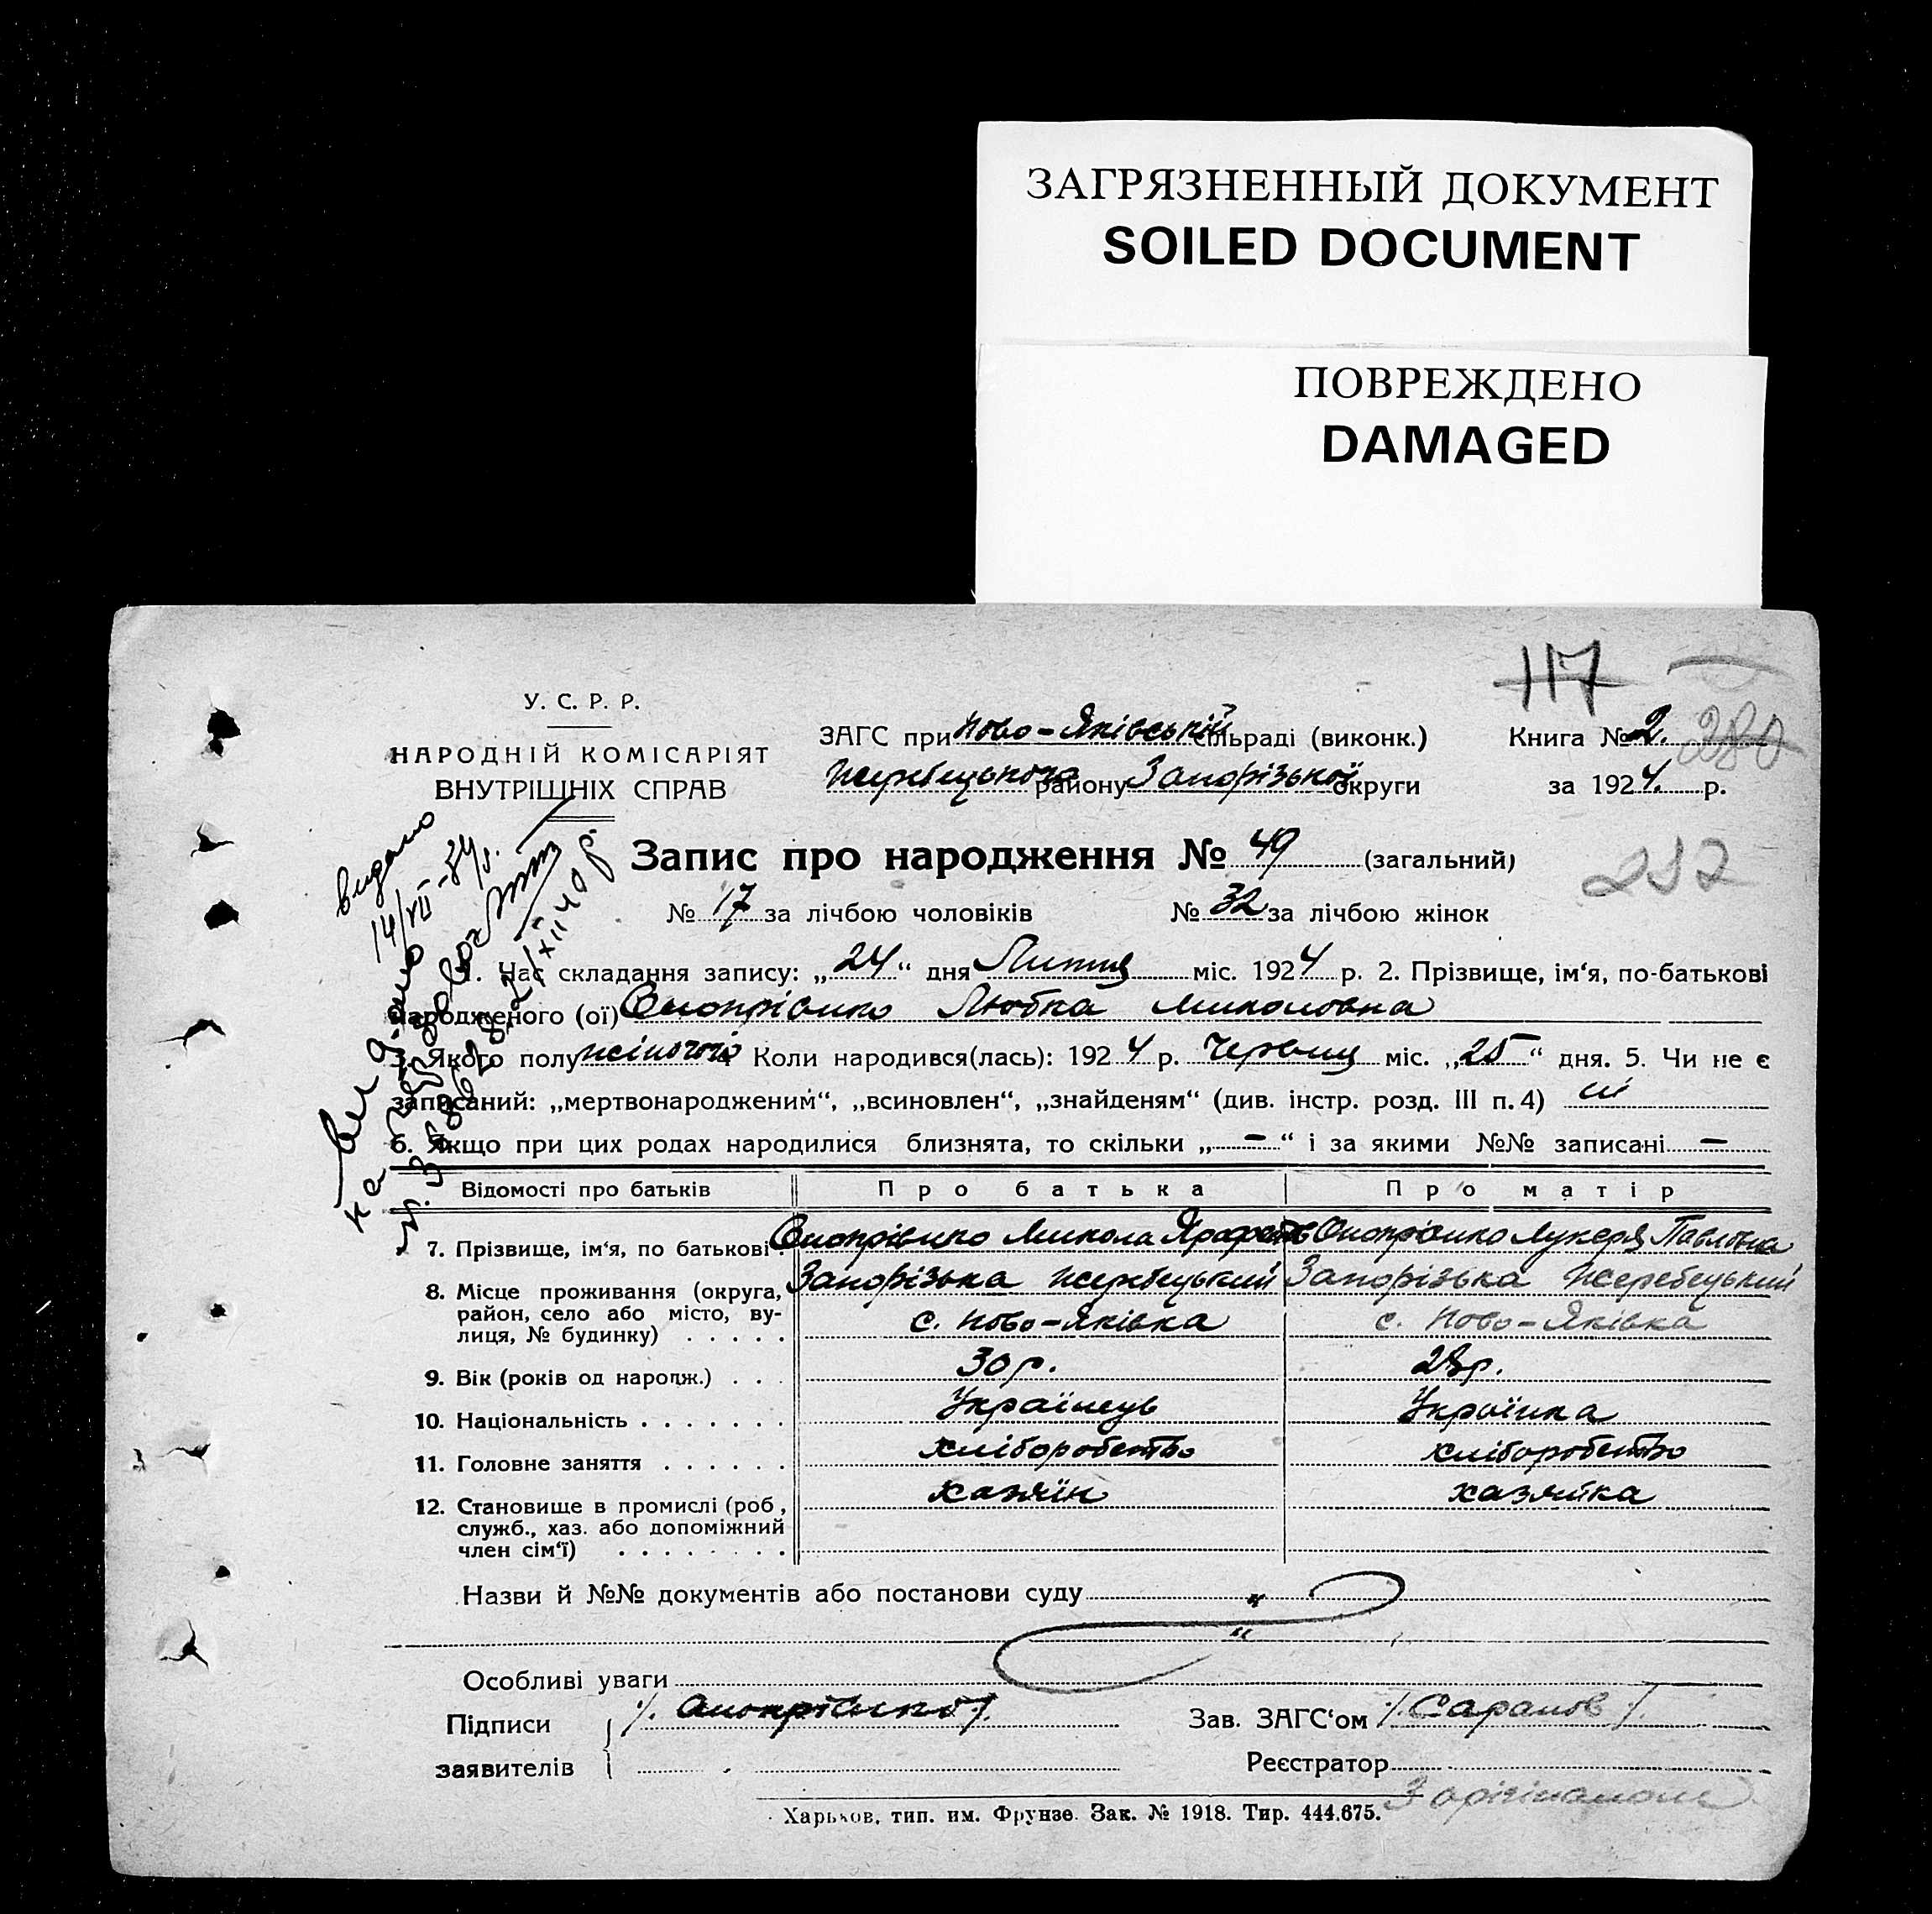 ЗАГРЯЗНЕННЫЙ ДОКУМЕНТ
SOILED DOCUMENT
ПОВРЕЖДЕНО
DAMAGED
117
У. С. Р. Р.
НАРОДНІЙ КОМІСАРІЯТ
ВНУТРІШНІХ СПРАВ
ЗАГС при Ново-Яківській сільраді (виконк.) Книга № 2. 280
Жеребецького району Запорізької округи за 1924. р.
видано
14/VII-34р.
Запис про народження № 49 (загальний)
232
№ 17 за лічбою чоловіків № 32 за лічбою жінок
1. Час складання запису: „24“ дня Липня міс. 1924 р. 2. Прізвище, ім‘я, по-батькові
народженого (ої) Онопрієнко Любка Миколовна
3. Якого полу жіночого 4 Коли народився(лась): 1924 р. Червня міс. „25“ дня. 5. Чи не є
записаний: „мертвонародженим“, „всиновлен“, „знайденям“ (див. інстр. розд. III п. 4) ні
6. Якщо при цих родах народилися близнята, то скільки „—“ і за якими №№ записані —
Відомості про батьків Про батька Про матір
7. Прізвище, ім‘я, по батькові . Онопрієнко Микола Онопрієнко Лукеря Павловна
8. Місце проживання (округа, Запорізька Жеребецький Запорізька Жеребецький
район, село або місто, ву-
лиця, № будинку) . . . . . с. Ново-Яківка с. Ново-Яківка
9. Вік (років од народж.) . . . 30 р. 28 р.
10. Національність . . . . . . . Українець Українка
11. Головне заняття . . . . . . хліборобство хліборобство
12. Становище в промислі (роб., хазяїн хазяйка
служб., хаз. або допоміжний
член сім‘ї) . . . . . . . .
Назви й №№ документів або постанови суду "
"
Особливі уваги
Підписи /. Онопрієнко /. Зав. ЗАГС‘ом /. Саранов /.
заявителів Реєстратор
З орігіналом
Харьков, тип. им. Фрунзе. Зак. № 1918. Тир. 444.675.